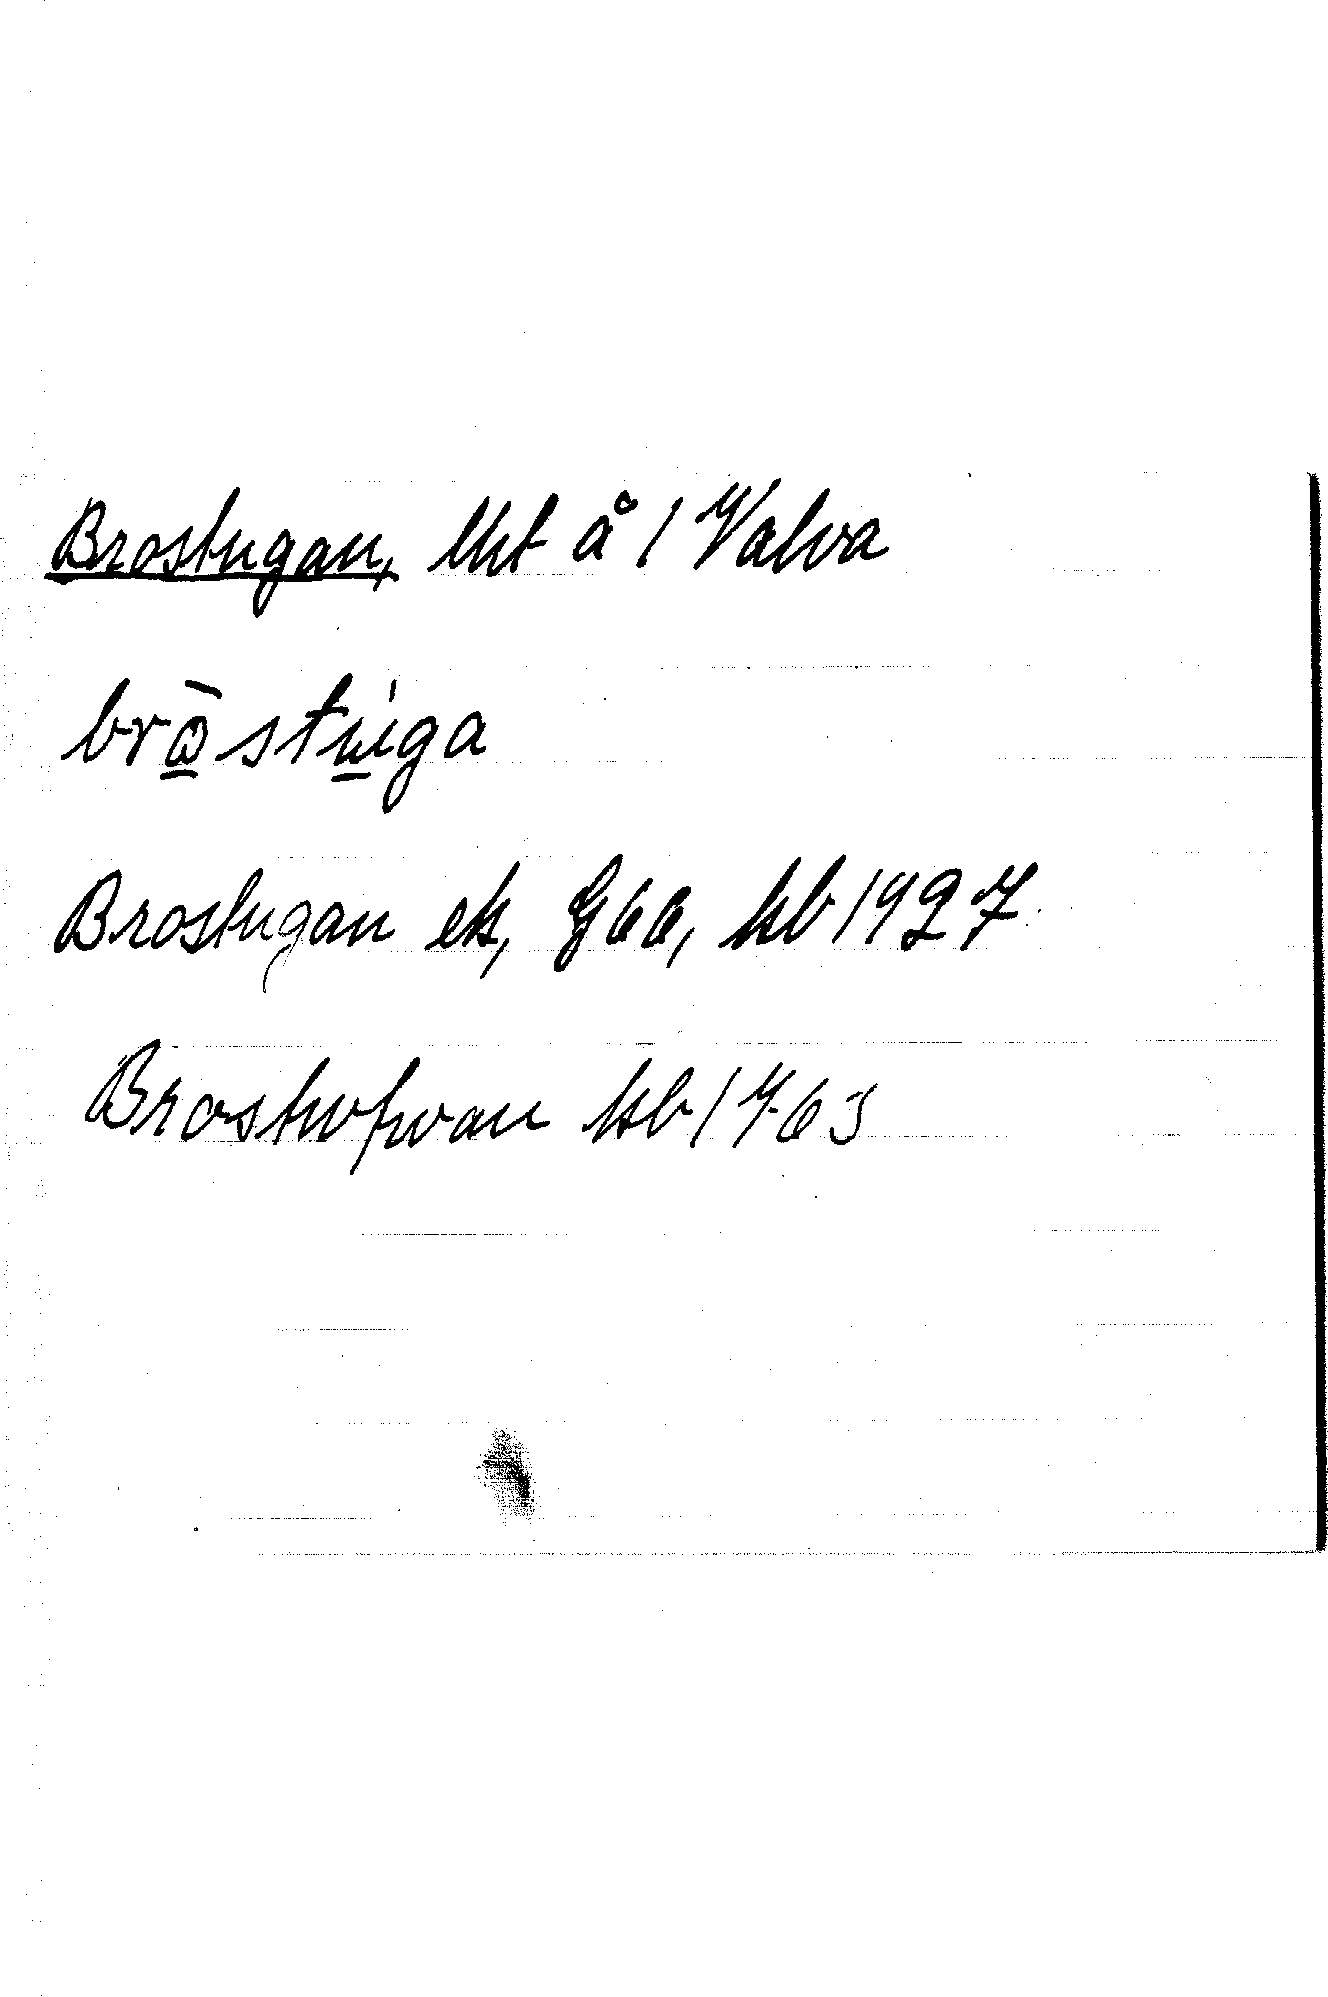 Brostugan, lht å 1 Valva
brω̲̄stú̲ga
Brostugan ek, G66, kb 1927
Brostufwan kb 1763